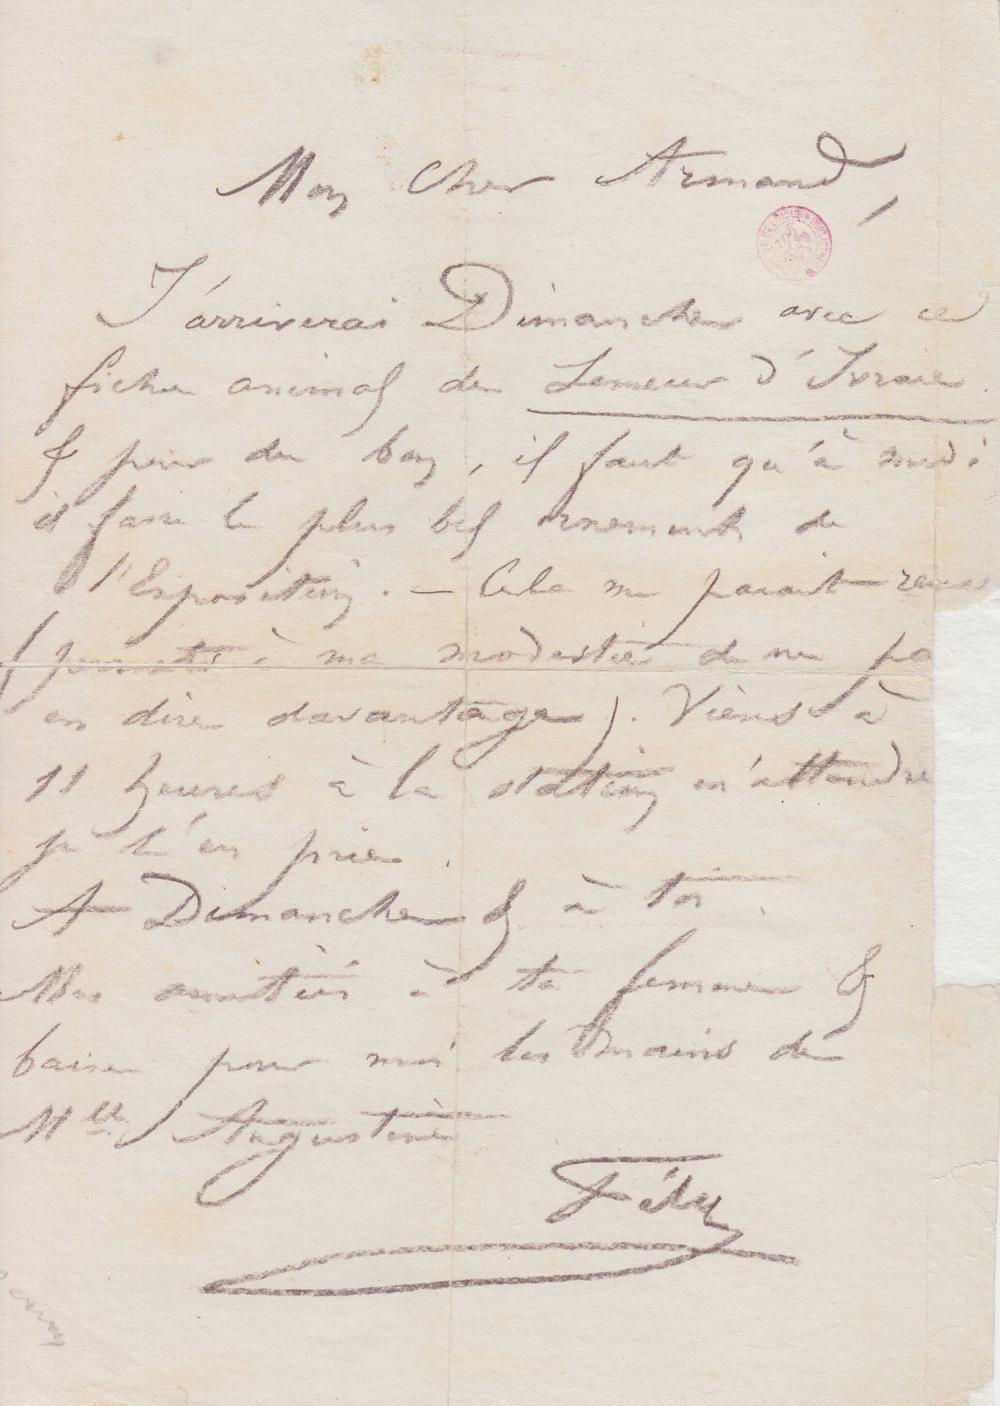 Mon cher Armand,
J'arriverai Dimanche avec ce
fichu animal de Semeur d'Ivraie
& pour du bon, il faut qu'à midi
il fasse le plus bel ornement de
l'Exposition. — Cela me parait
(permets à ma modestie de ne pa
en dire davantage). Viens à
11 heures à la station m'attendre
je t'en prie.
A Dimanche & à toi.
Mes amitiés à ta femme &
baise pour moi les mains de
Mlle Augustine
Fély